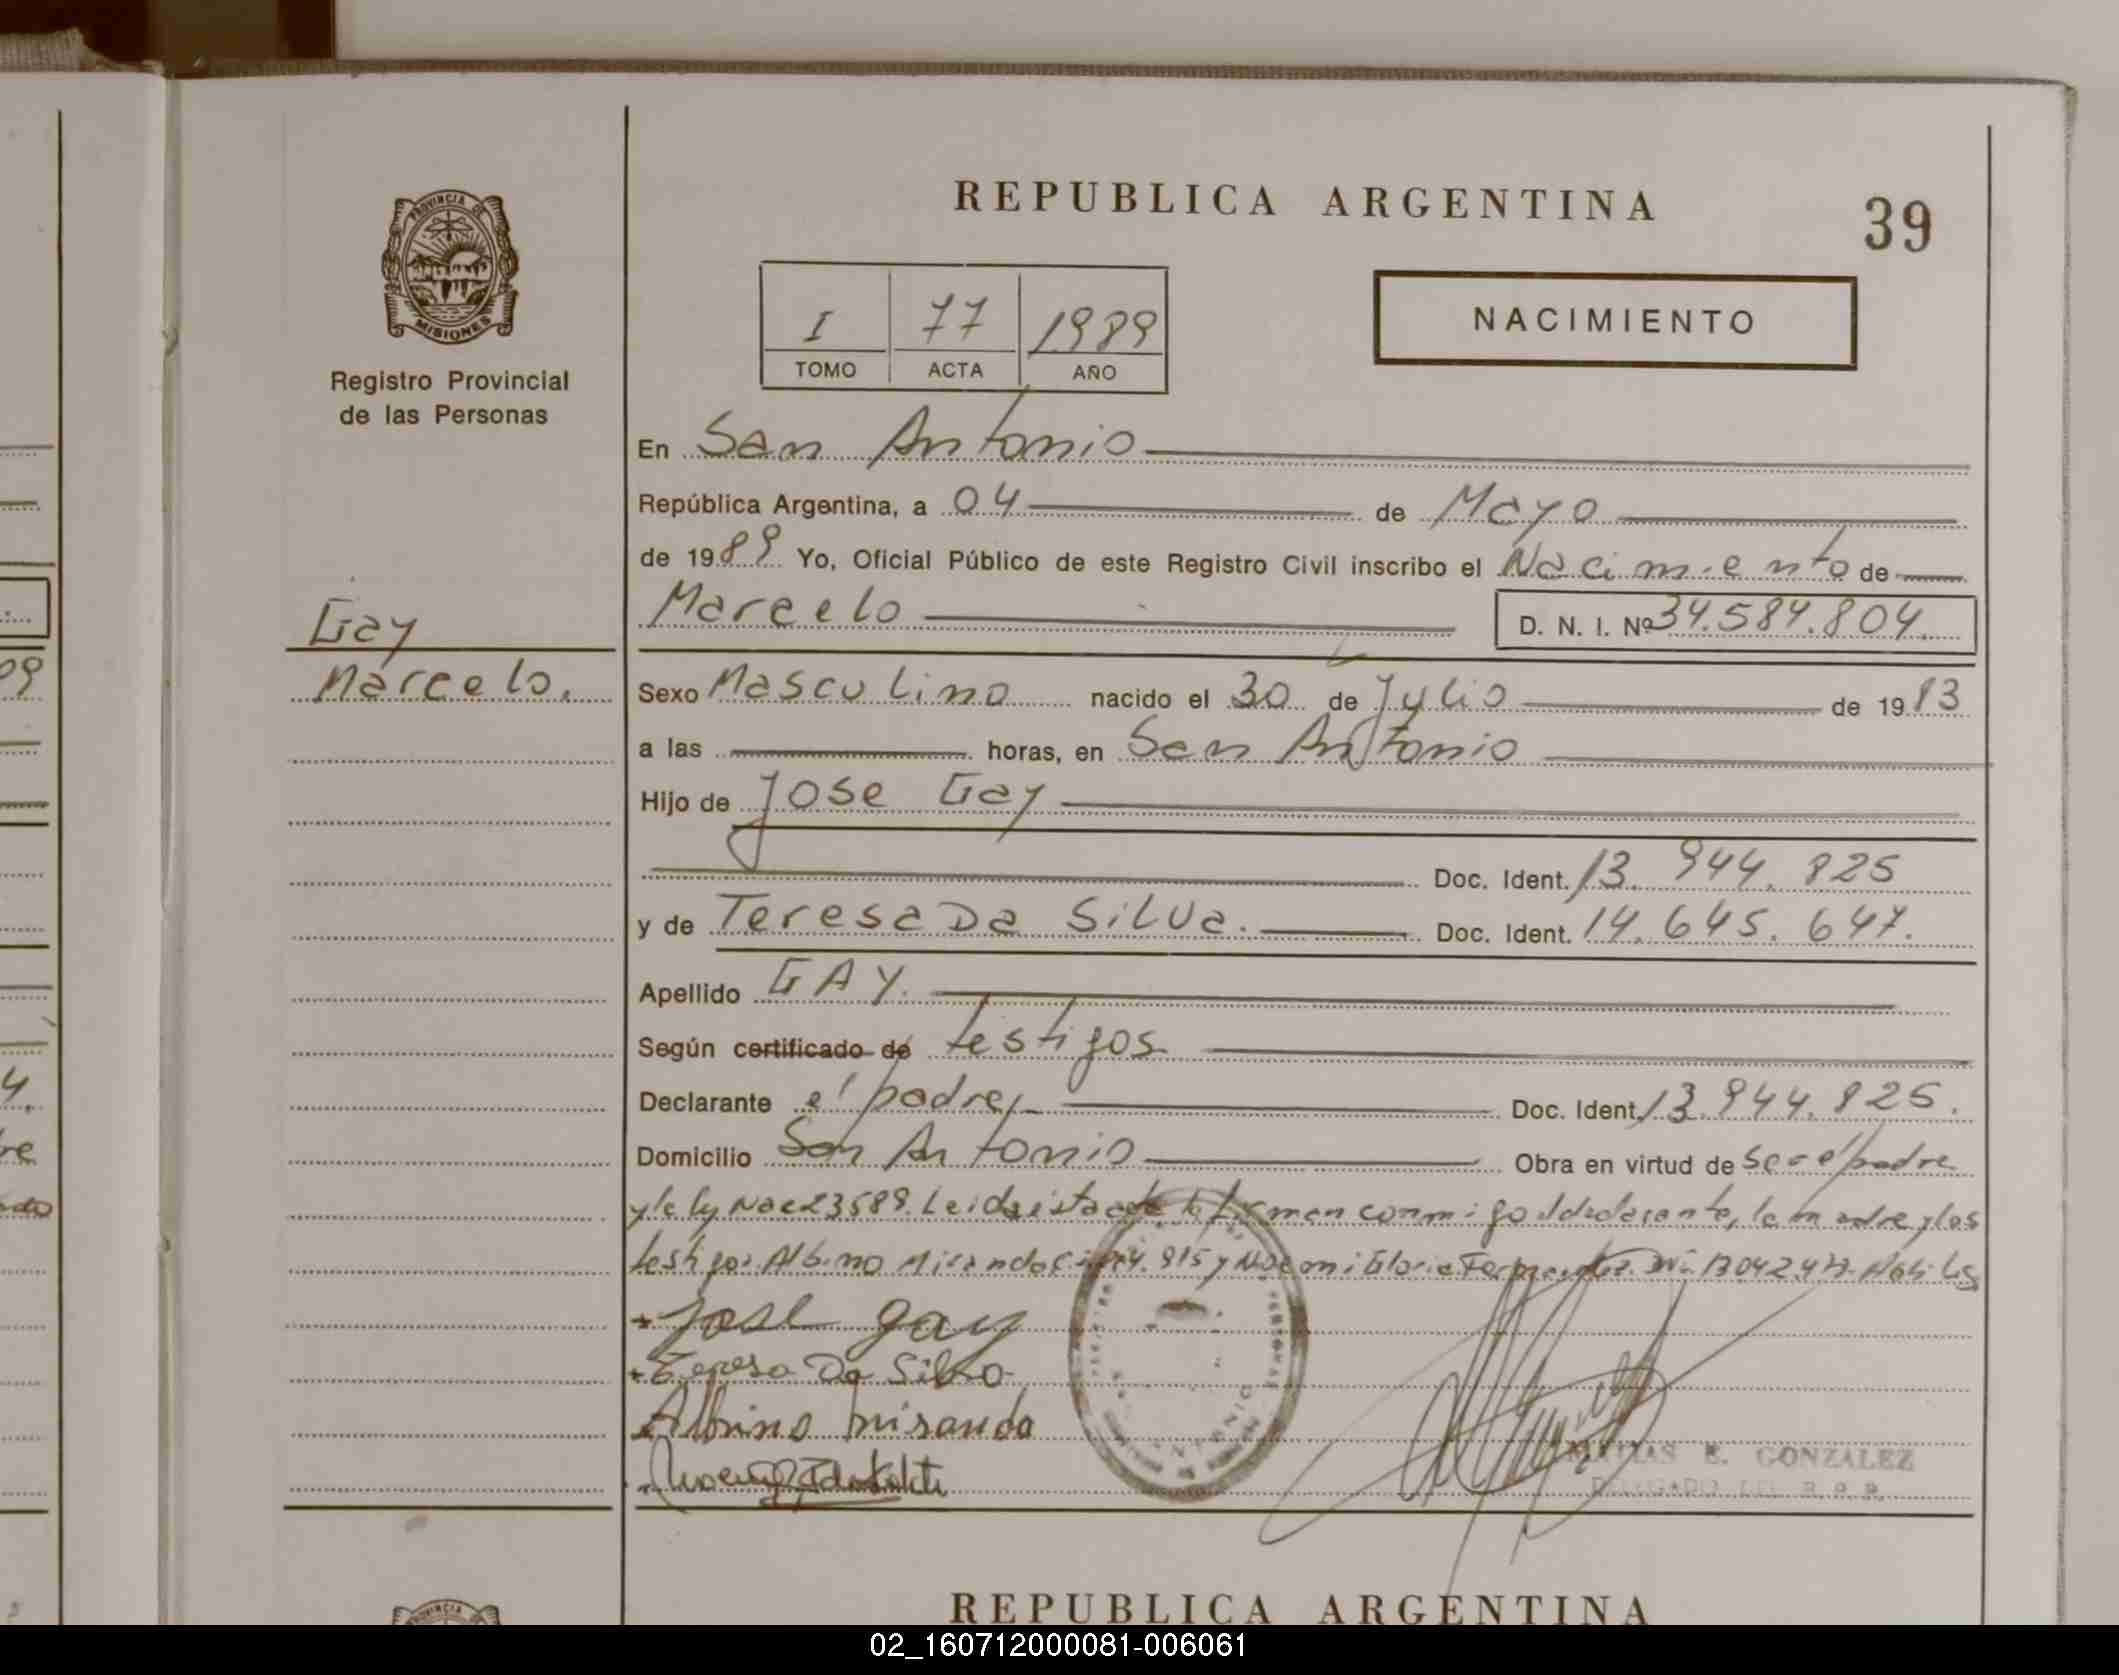 REPUBLICA ARGENTINA
39
PROVINCIA DE
MISIONES
Registro Provincial
de las Personas
I 77 1989
TOMO ACTA AÑO
NACIMIENTO
En San Antonio
República Argentina, a 04 de Mayo
de 1989 Yo, Oficial Público de este Registro Civil inscribo el Nacimiento de
Marcelo D. N. I. Nº 34.584.804.
Gay
Marcelo.
Sexo Masculino nacido el 30 de Julio de 1983
a las horas, en San Antonio
Hijo de Jose Gay
Doc. Ident. 13.944.825
y de Teresa Da Silva. Doc. Ident. 14.645.647.
Apellido GAY.
Según certificado de testigos
Declarante el padre, Doc. Ident. 13.944.825.
Domicilio San Antonio Obra en virtud de ser el padre
y la ley Nac 23589. Leida esta acta la firman conmigo el declarante, la madre y los
testigos Albino Miranda y Noemi Gloria
Jose gay
Teresa Da Silva
Albino miranda
MATIAS E. GONZALEZ
DELEGADO DEL R.P.P.
REPUBLICA ARGENTINA
02_160712000081-006061